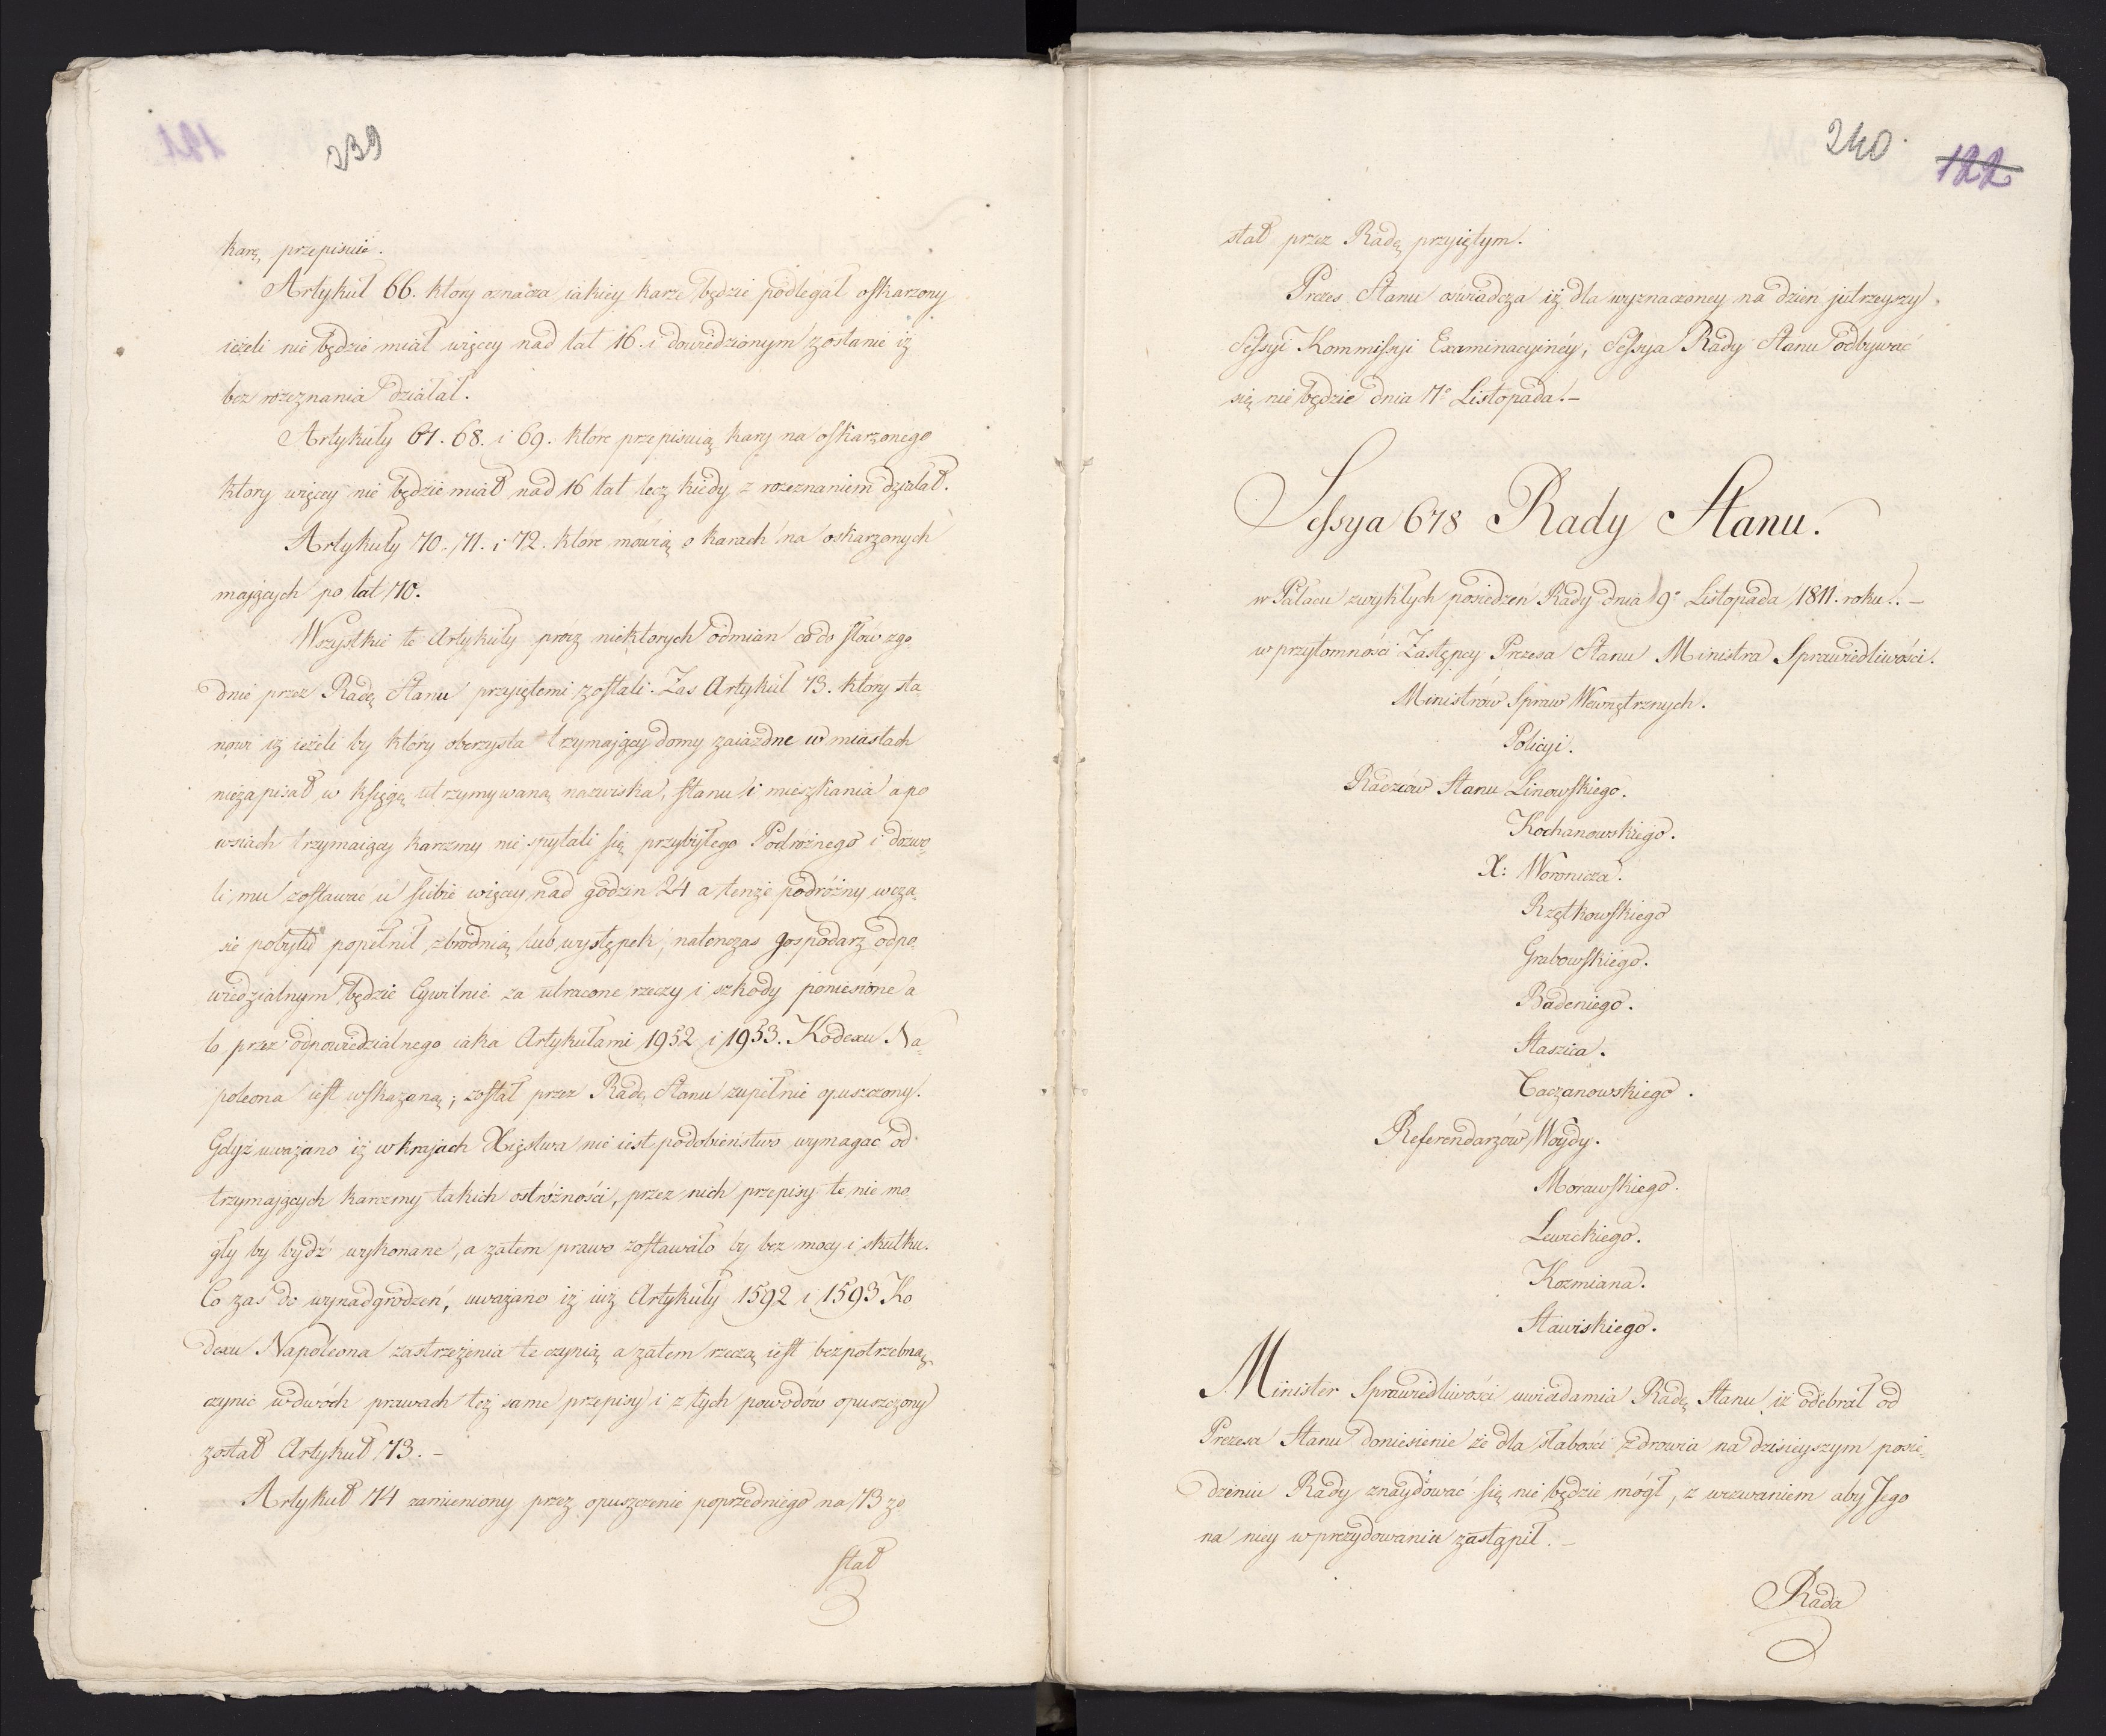 239
karę przepisuie.
Artykuł 66. który oznacza iakiey karze będzie podlegał oskarzony
ieżeli nie będzie miał więcey nad lat 16. i dowiedzionym zostanie iż
bez rozeznania działał.
Artykuły 67. 68. i 69. które przepisuią kary na oskarzonego
ktory więcey nie będzie miał nad 16 lat lecz kiedy z rozeznaniem działał.
Artykuły 70. 71. i 72. które mówią o karach na oskarzonych
mających po lat 70.
Wszystkie te Artykuły prócz niektorych odmian co do słów zgo
dnie przez Radę Stanu przyiętemi zostali. Zas Artykuł 73. który sta
nowi iz ieżeli by który oberzysta trzymający domy zaiazdne w miastach
niezapisał w księgę utrzymywaną nazwiska, stanu i mieszkania a po
wsiach trzymaiący karczmy nie spytali się przybyłego Podróżnego i dozwo
li mu zostawać u siebie więcey nad godzin 24 a tenże podróżny w cza
sie pobytu popełnił zbrodnią lub występek, natenczas gospodarz odpo
wiedzialnym będzie Cywilnie za utracone rzeczy i szkody poniesione a
to przez odpowiedzialnego iaka Artykułami 1952 i 1953. Kodexu Na
poleona iest wskazaną; został przez Radę Stanu zupełnie opuszczony.
Gdyż uważano iż w krajach Xięstwa nie iest podobieństwo wymagać od
trzymających karczmy takich ostróżności, przez nich przepisy te nie mo
gły by bydź wykonane, a zatem prawo zostawało by bez mocy i skutku.
Co zas do wynadgrodzeń, uważano iż iuż Artykuły 1592 i 1593 Ko
dexu Napoleona zastrzeżenia te czynią a zatem rzeczą iest bezpotrzebną
czynić w dwóch prawach też same przepisy i z tych powodów opuszczony
został Artykuł 73. –
Artykuł 74 zamieniony przez opuszczenie poprzedniego na 73 zo
stał
240.
122
stał przez Radę przyiętym.
Prezes Stanu oświadcza iż dla wyznaczoney na dzień jutrzeyszy
Sessyi Kommissyi Examinacyinéy, Sessya Rady Stanu odbywać
się nie będzie dnia 7º Listopada. –
Sessya 678 Rady Stanu.
w Pałacu zwykłych posiedzeń Rady dnia 9º Listopada 1811. roku. –
w przytomności Zastępcy Prezesa Stanu Ministra Sprawiedliwości.
Ministrów Spraw Wewnętrznych.
Policyi.
Radzców Stanu Linowskiego.
Kochanowskiego.
X: Woronicza.
Rzętkowskiego
Grabowskiego.
Badeniego.
Staszica.
Taczanowskiego.
Referendarzów Woydy.
Morawskiego.
Lewickiego.
Kozmiana.
Stawiskiego.
Minister Sprawiedliwości uwiadamia Radę Stanu iż odebrał od
Prezesa Stanu doniesienie że dla słabości zdrowia na dzisieyszym posie
dzeniu Rady znaydować się nie będzie mógł, z wezwaniem aby Jego
na niey w prezydowaniu zastąpił. –
Rada